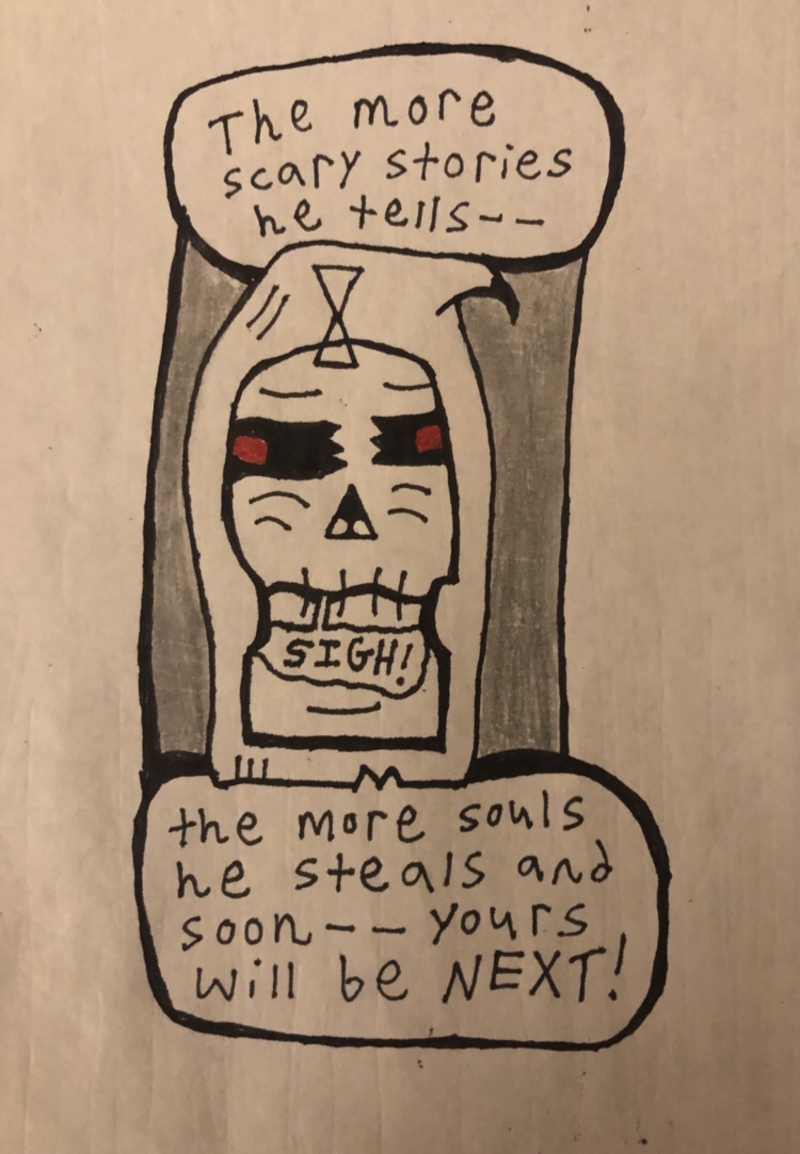 The more
scary stories
he tells--
SIGH!
the more souls
he steals and
soon-- yours
will be NEXT!